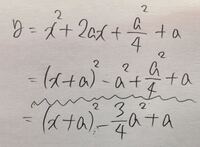 y = x² + 2ax + a²/4 + a
= (x+a)² - a² + a²/4 + a
= (x+a)² - 3/4 a² + a